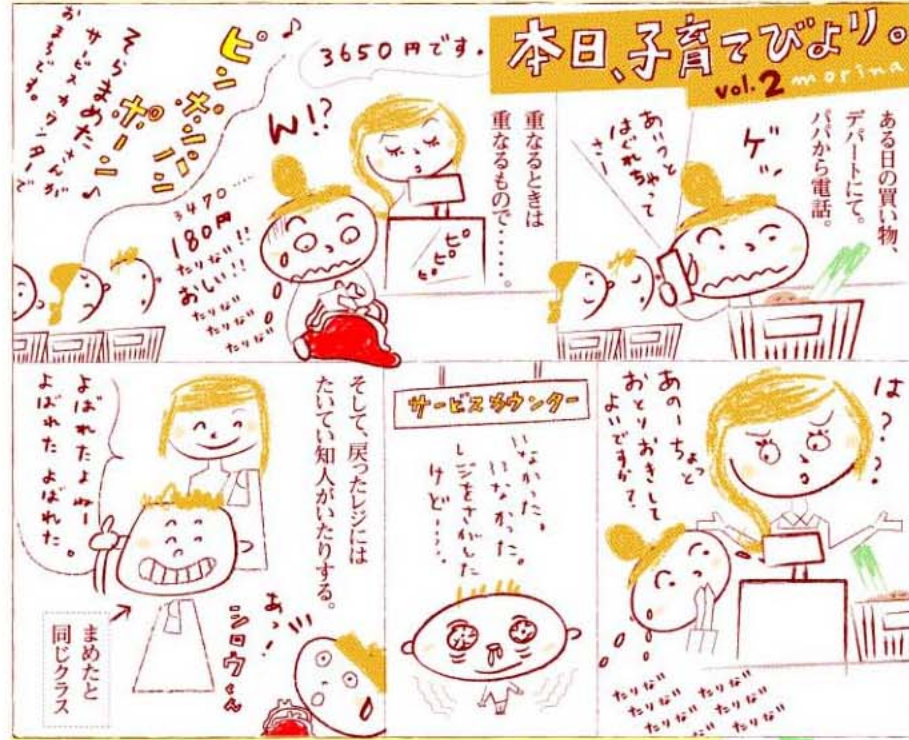 本日、子育てびより。
vol.2 morina
ある日の買い物、
デパートにて。
パパから電話。
ゲッ
あいつと
はぐれちゃって
さー
重なるときは
重なるもので……。
3650円です。
ピピピ
ん!?
3470……
180円
たりない!!
おしい!!
たりない
たりない
たりない
♪
ピンポンパン
ポーン♪
そらまめたさんが
サービスカウンターで
おまちです。
は??
あのーちょっと
おとりおきして
よいですか?
たりない たりない
たりない たりない
たりない たりない
サービスカウンター
いなかった。
いなかった。
レジをさがした
けど……
そして、戻ったレジには
たいてい知人がいたりする。
あっ!
シロウくん
よばれたよねー
よばれた よばれた。
まめたと
同じクラス